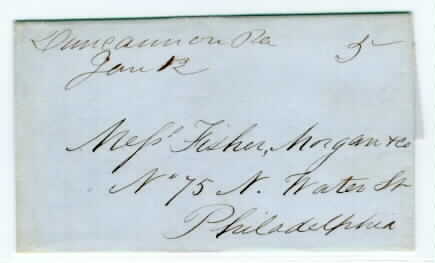 Duncannon Pa 5
Jan 12
Messrs. Fisher, Morgan & Co
No 75 N. Water St
Philadelphia